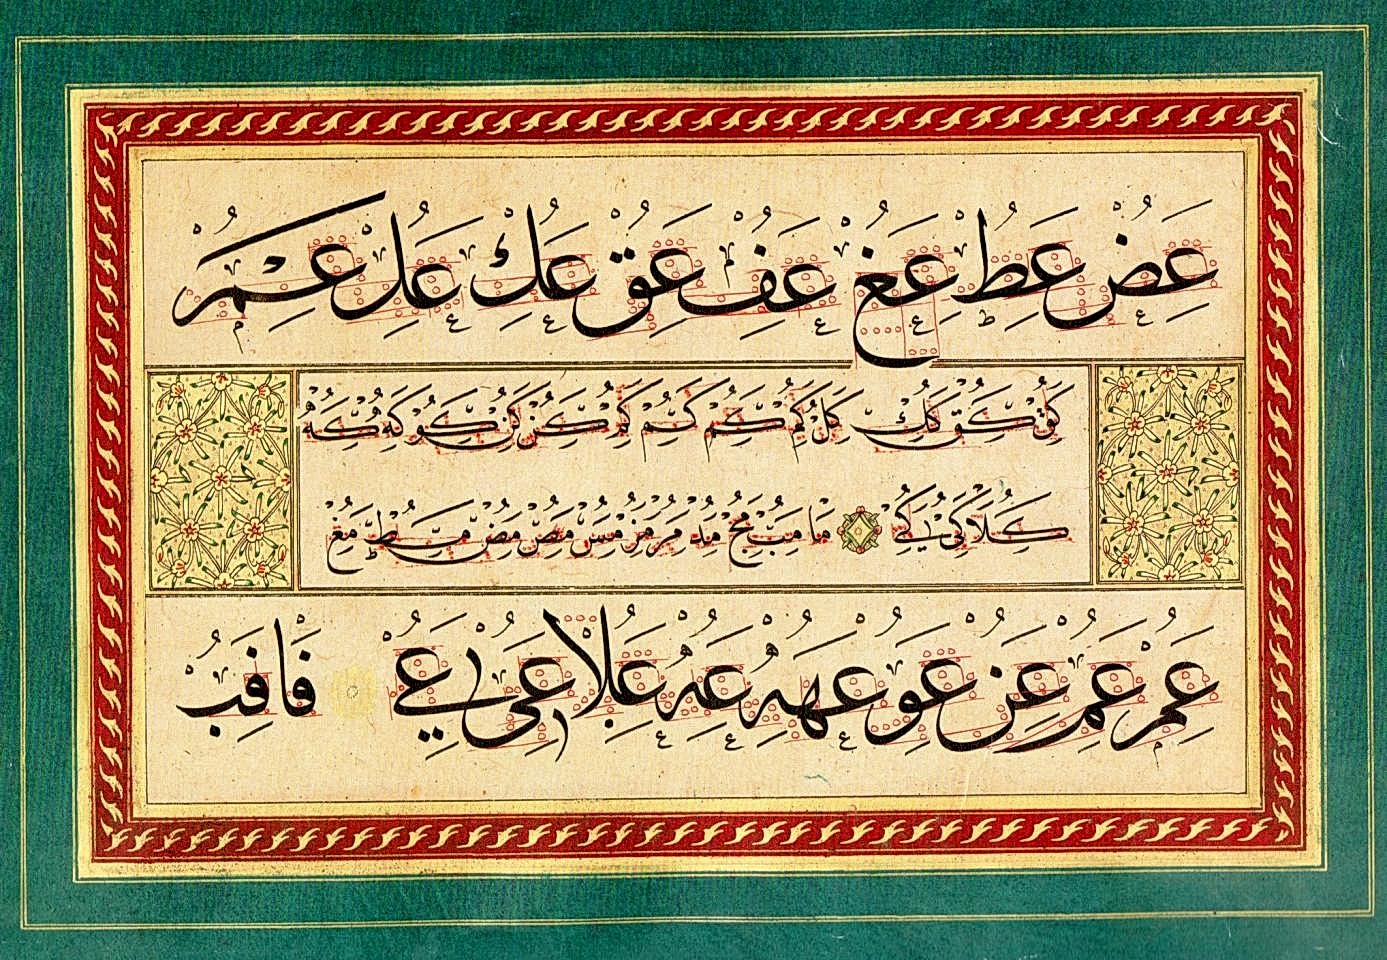 عض عط عغ عف عق عك عل عم
كق كق كك كل كم كم كم كم كن كن كو كه كه
كلا كى كى ما مب مج مد مر مز مس مص مض مط مغ
عم عم عن عو عه عه علا عى عى فا فب